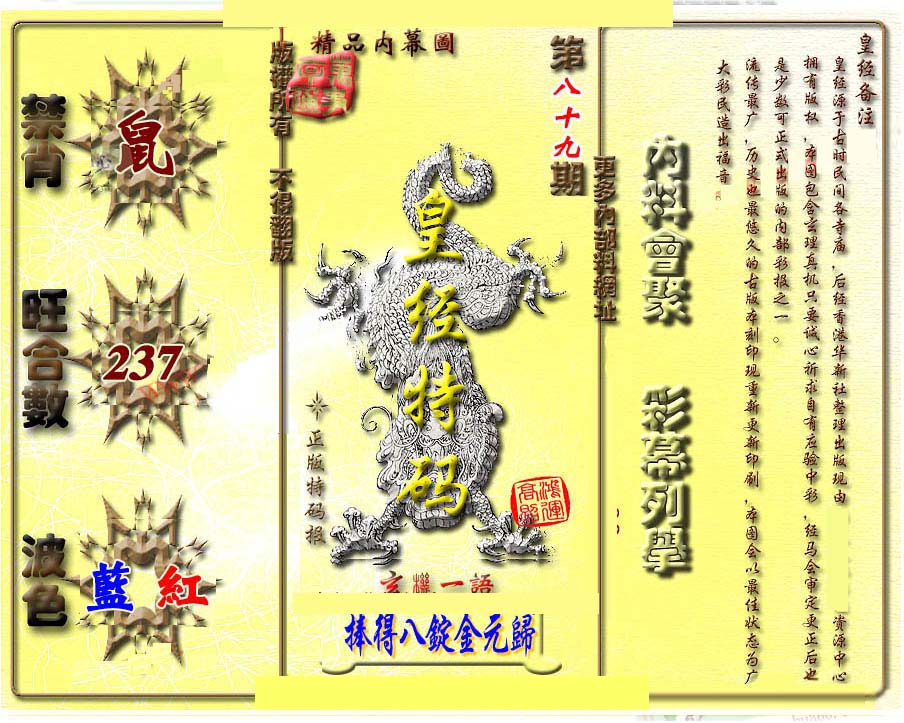 皇经备注
皇经源于古时民间各寺庙,后经香港华新社整理出版现由 资源中心
拥有版权,本图包含玄理真机只要诚心祈求自有应验中彩,经马会审定更正后也
是少数可正式出版的内部彩报之一。
流传最广,历史也最悠久的古版本刻印现重新更新印刷,本图会以最佳状态为广
大彩民造出福音
内料會聚 彩幕列舉
更多內部料網址
第八十九期
精品内幕圖
皇经特码
鴻運高照
正版特码招
玄機一語
捧得八錠金元歸
版權所有 不得翻版
禁肖
鼠
旺合數
237
波色
藍 紅